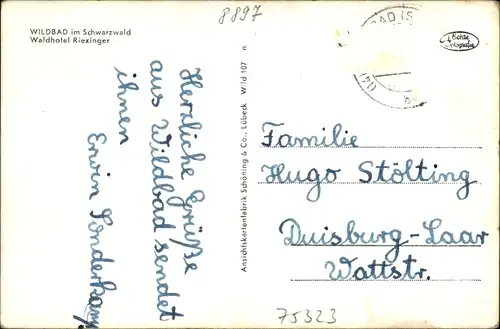 8897
WILDBAD im Schwarzwald
Waldhotel Riexinger
Echte
Fotografie
Herzliche Grüße
aus Wildbad sendet
ihnen
Erwin Sonderkamp
Ansichtskartenfabrik Schöning & Co., Lübeck Wild 107 n
Familie
Hugo Stölting
Duisburg-Laar
Wattstr.
75323